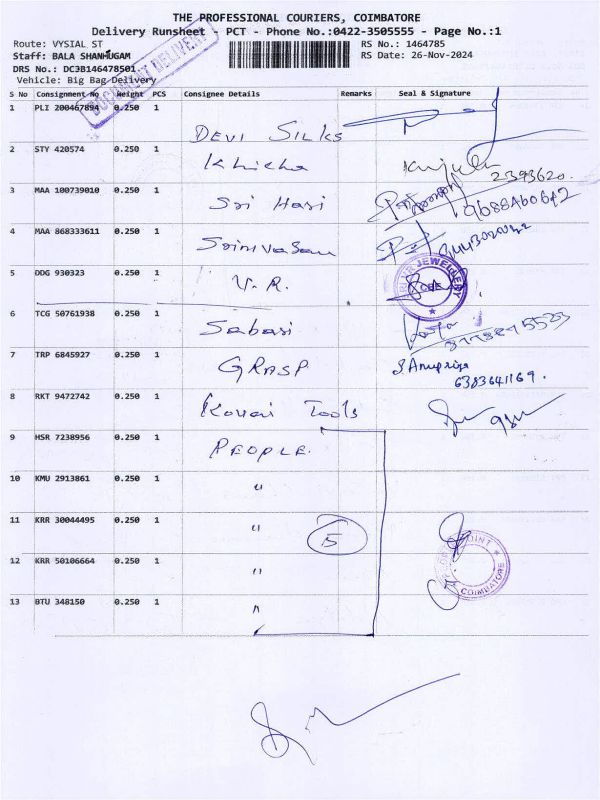 THE PROFESSIONAL COURIERS, COIMBATORE
Delivery Runsheet - PCT - Phone No.:0422-3505555 - Page No.:1
Route: VYSIAL ST RS No.: 1464785
Staff: BALA SHANMUGAM RS Date: 26-Nov-2024
DRS No.: DC3B146478501
Vehicle: Big Bag Delivery
DOCUMENT DELIVERY
S No Consignment No Weight PCS Consignee Details Remarks Seal & Signature
1 PLI 200467894 0.250 1 DEVI SILKS
2 STY 420574 0.250 1 Khicha 2393620.
3 MAA 100739010 0.250 1 Sri Hari
4 MAA 868333611 0.250 1 Srinivasan
5 DDG 930323 0.250 1 V.R. JEWELLERY CBE
6 TCG 50761938 0.250 1 Sabari
7 TRP 6845927 0.250 1 GRASP S.Anupriya
6383641169.
8 RKT 9472742 0.250 1 Kovai Tools
9 HSR 7238956 0.250 1 PEOPLE.
10 KMU 2913861 0.250 1 "
11 KRR 30044495 0.250 1 " 5
12 KRR 50106664 0.250 1 " POINT COIMBATORE
13 BTU 348150 0.250 1 "